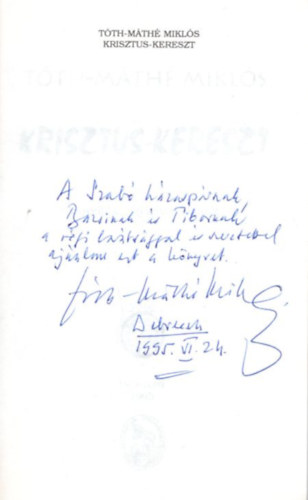 TÓTH-MÁTHÉ MIKLÓS
KRISZTUS-KERESZT
A Szabó házaspárnak,
és Tibornak
a régi barátsággal és szeretettel
ajánlom ezt a könyvet.
Tóth-Máthé Miklós
Debrecen
1995. VI. 24.